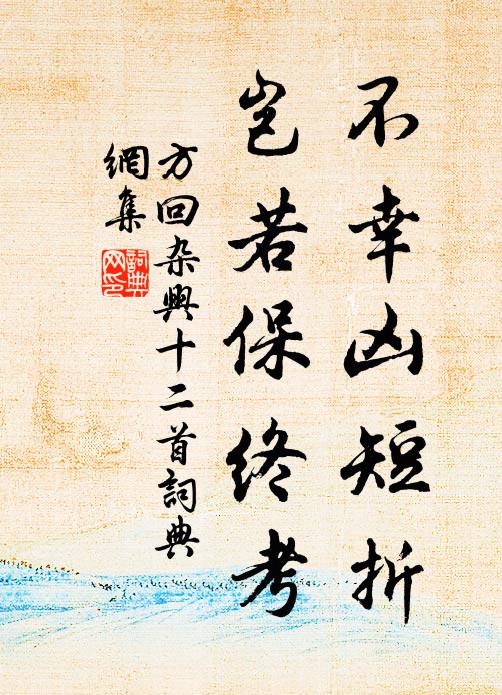 不幸凶短折
豈若保終考
方回杂興十二首詞典
網集
詞典
网印